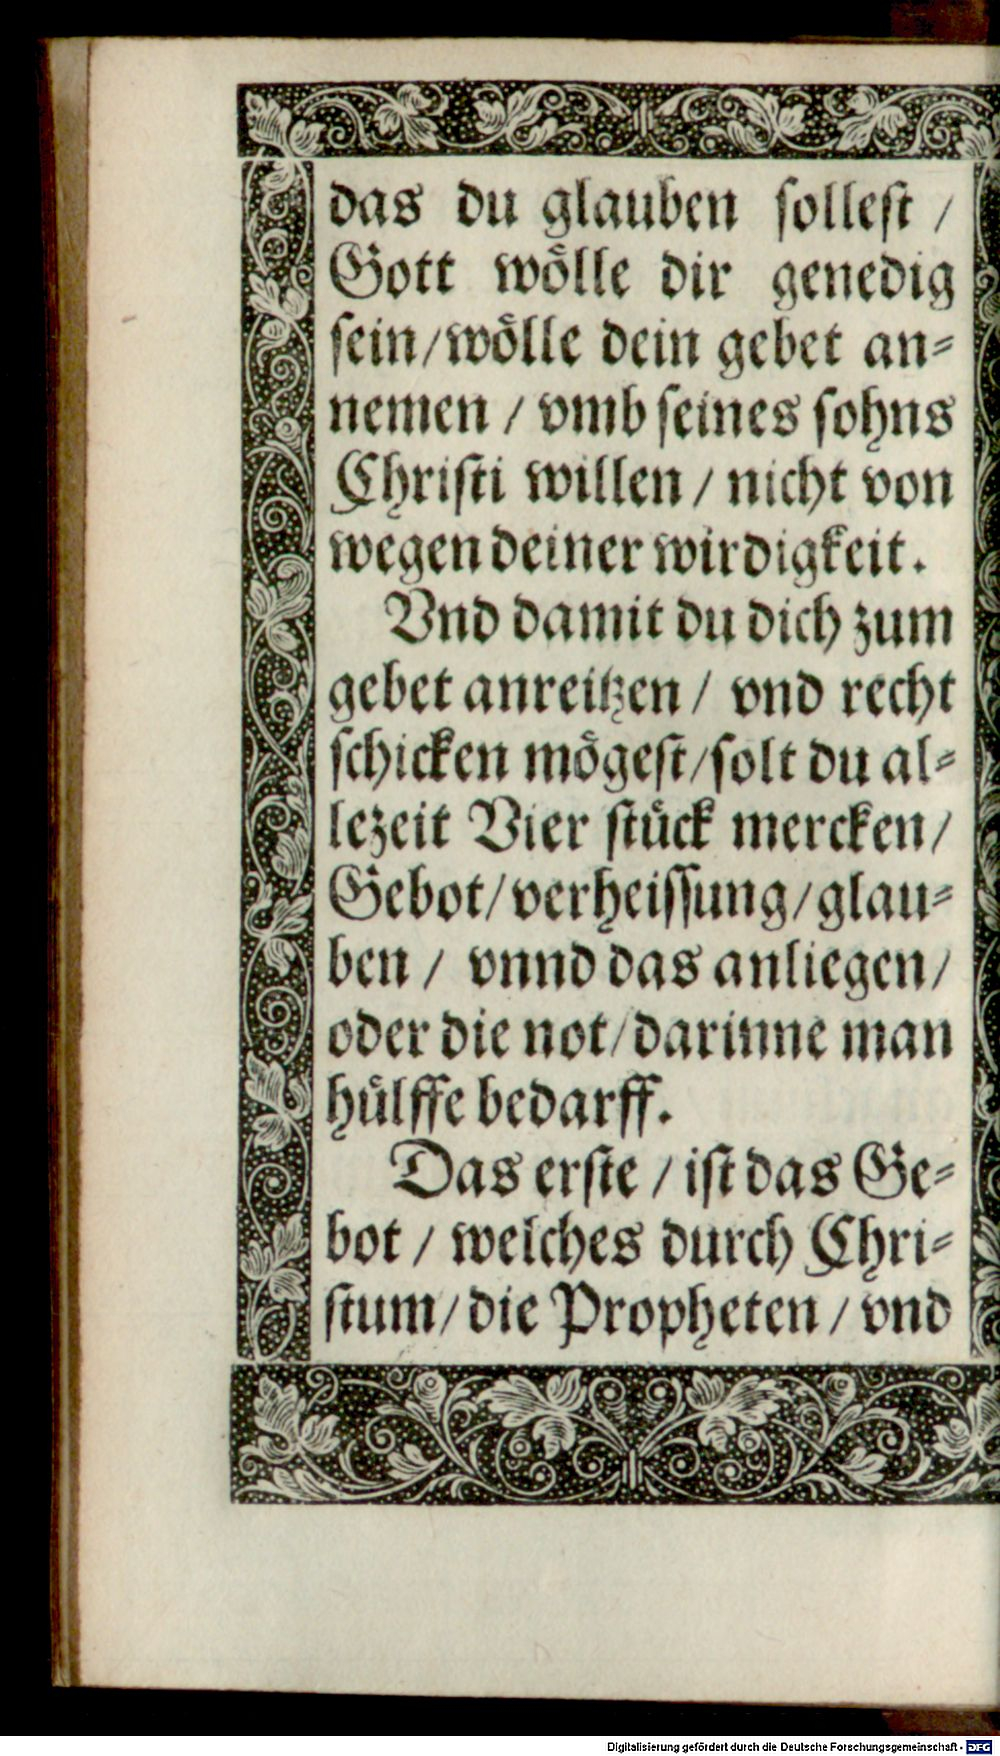 das du glauben sollest /
Gott wölle dir genedig
sein/wölle dein gebet an⸗
nemen / vmb seines sohns
Christi willen / nicht von
wegen deiner wirdigkeit.
Vnd damit du dich zum
gebet anreitzen / vnd recht
schicken mögest/solt du al⸗
lezeit Vier stück mercken/
Gebot/verheissung/glau⸗
ben / vnnd das anliegen/
oder die not/darinne man
hülffe bedarff.
Das erste / ist das Ge⸗
bot / welches durch Chri⸗
stum/die Propheten / vnd
Digitalisierung gefördert durch die Deutsche Forschungsgemeinschaft - DFG